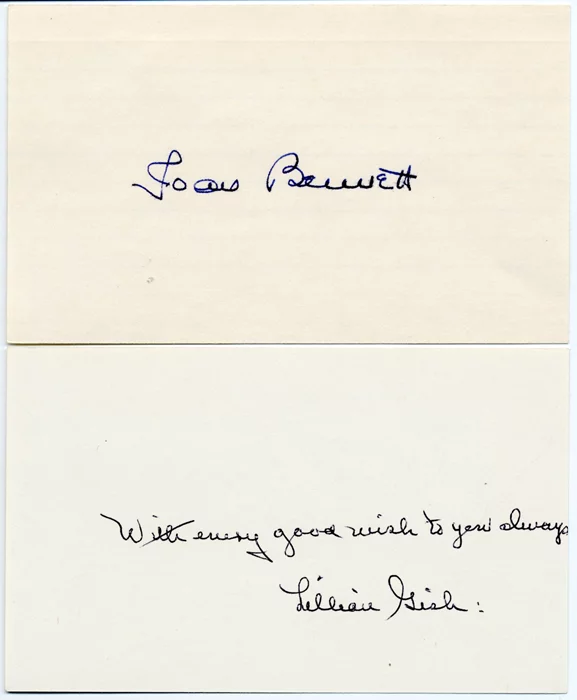 Joan Bennett
With every good wish to you always
Lillian Gish: